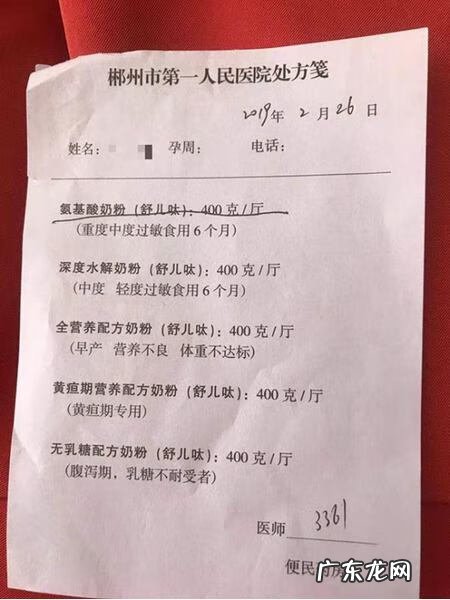 郴州市第一人民医院处方笺
2019年 2 月 26 日
姓名: 孕周: 电话:
氨基酸奶粉(舒儿呔): 400 克/厅
(重度中度过敏食用6个月)
深度水解奶粉(舒儿呔): 400 克/厅
(中度 轻度过敏食用6个月)
全营养配方奶粉(舒儿呔): 400 克/厅
(早产 营养不良 体重不达标)
黄疸期营养配方奶粉(舒儿呔): 400 克/厅
(黄疸期专用)
无乳糖配方奶粉(舒儿呔): 400 克/厅
(腹泻期, 乳糖不耐受者)
医师 3361
便民药房
广东龙网